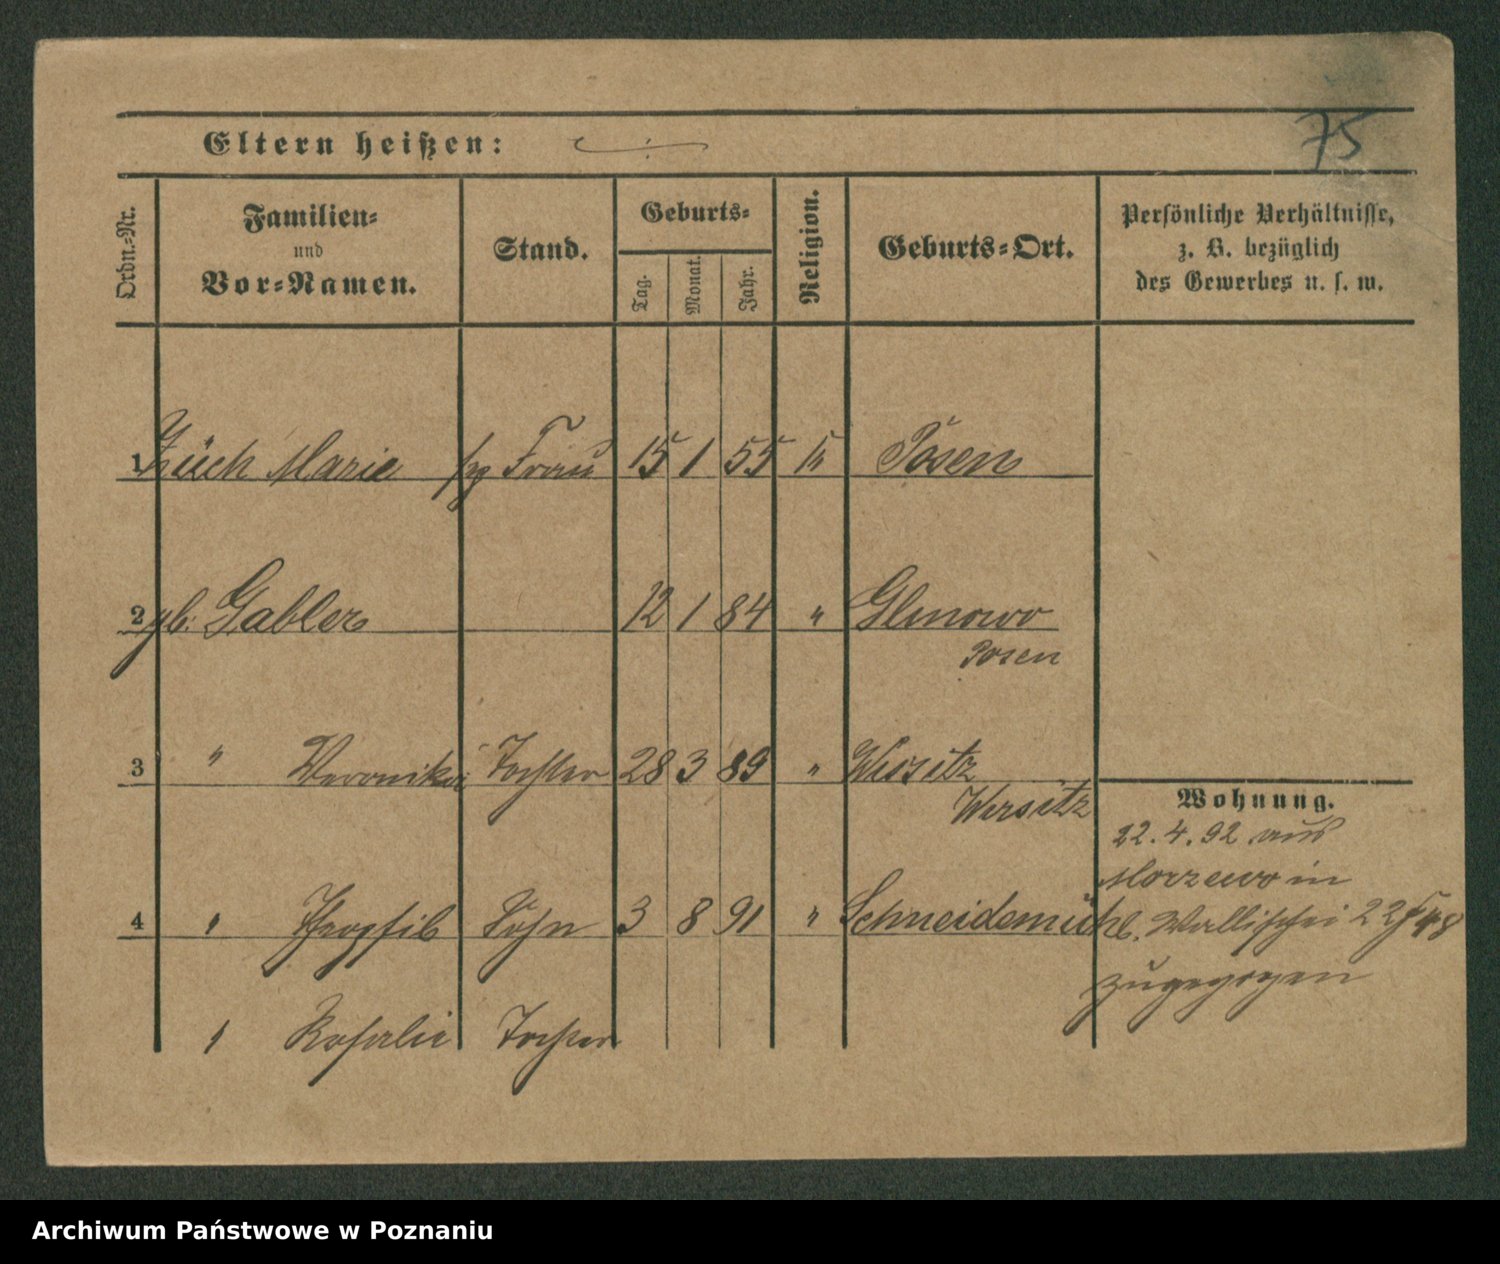 75
Eltern heißen:
Ordn.-Nr.
Familien- und Vor-Namen.
Stand.
Geburts-
Tag.
Monat.
Jahr.
Religion.
Geburts-Ort.
Persönliche Verhältnisse,
z. B. bezüglich
des Gewerbes u. s. w.
1 Züch Marie Frau 15 1 55 Posen
2 gb. Gabler 12 1 84 " Glinowo
Posen
3 " Veronika Tochter 28 3 89 " Wissitz
Wirsitz
Wohnung.
22.4.92 aus
Morzewo in
4 " Theophil Sohn 3 8 91 " Schneidemühl. Wallischei
zugezogen
Rosalie Tochter
Archiwum Państwowe w Poznaniu